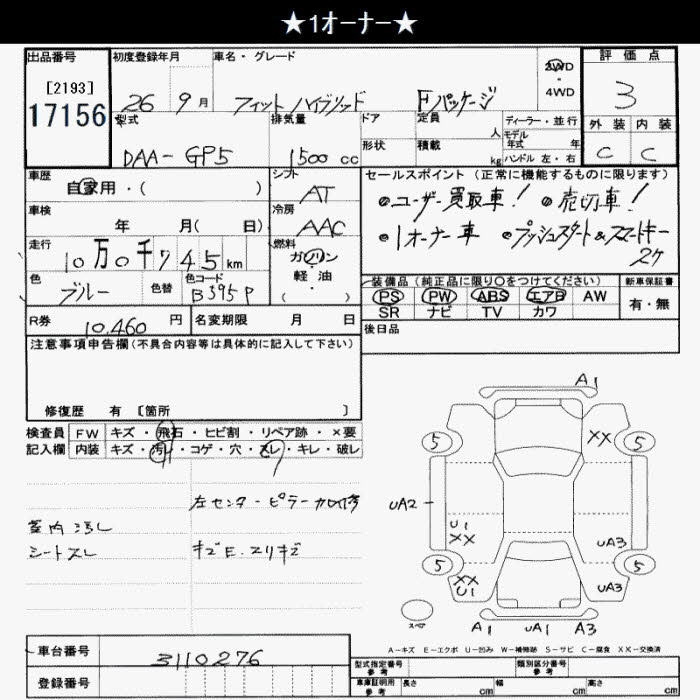 ★1オーナー★
出品番号
[2193]
17156
初度登録年月
26 9月
車名・グレード
フィットハイブリッド Fパッケージ
2WD
・
4WD
評価点
3
外装 内装
C C
型式
DAA-GP5
排気量
1500 cc
ドア
形状
定員
人
積載
kg
ディーラー・並行
モデル
年式 年
ハンドル 左・右
車歴
自家用・( )
シフト
AT
車検
年 月( 日)
冷房
AAC
走行
10万0千745km
燃料
ガソリン
・
軽・油
( )
色
ブルー
色替
色コード
B595P
セールスポイント(正常に機能するものに限ります)
●ユーザー買取車! ●売切車!
●1オーナー車 ●プッシュスタート&スマートキー
2ケ
装備品(純正品に限り〇をつけてください)
PS PW ABS エアB AW
SR ナビ TV カワ
新車保証書
有・無
R券
10.460 円
名変期限 月 日
後日品
注意事項申告欄(不具合内容等は具体的に記入して下さい)
修復歴 有 [箇所 ]
検査員
記入欄
FW キズ・飛石・ヒビ割・リペア跡・×要
内装 キズ・汚レ・コゲ・穴・スレ・キレ・破レ
左センターピラー
室内汚レ
シートスレ
キズE.スリキズ
A1
5
XX
5
UA2
U1
XX
UA3
5
XX
U1
5
UA3
スペア
A1 UA1 A3
A-キズ E-エクボ U-凹み W-補修跡 S-サビ C-腐食 XX-交換済
車台番号
3110276
登録番号
型式指定番号
参考
類別区分番号
参考
車庫証明用
参考
長さ cm
幅 cm
高さ cm